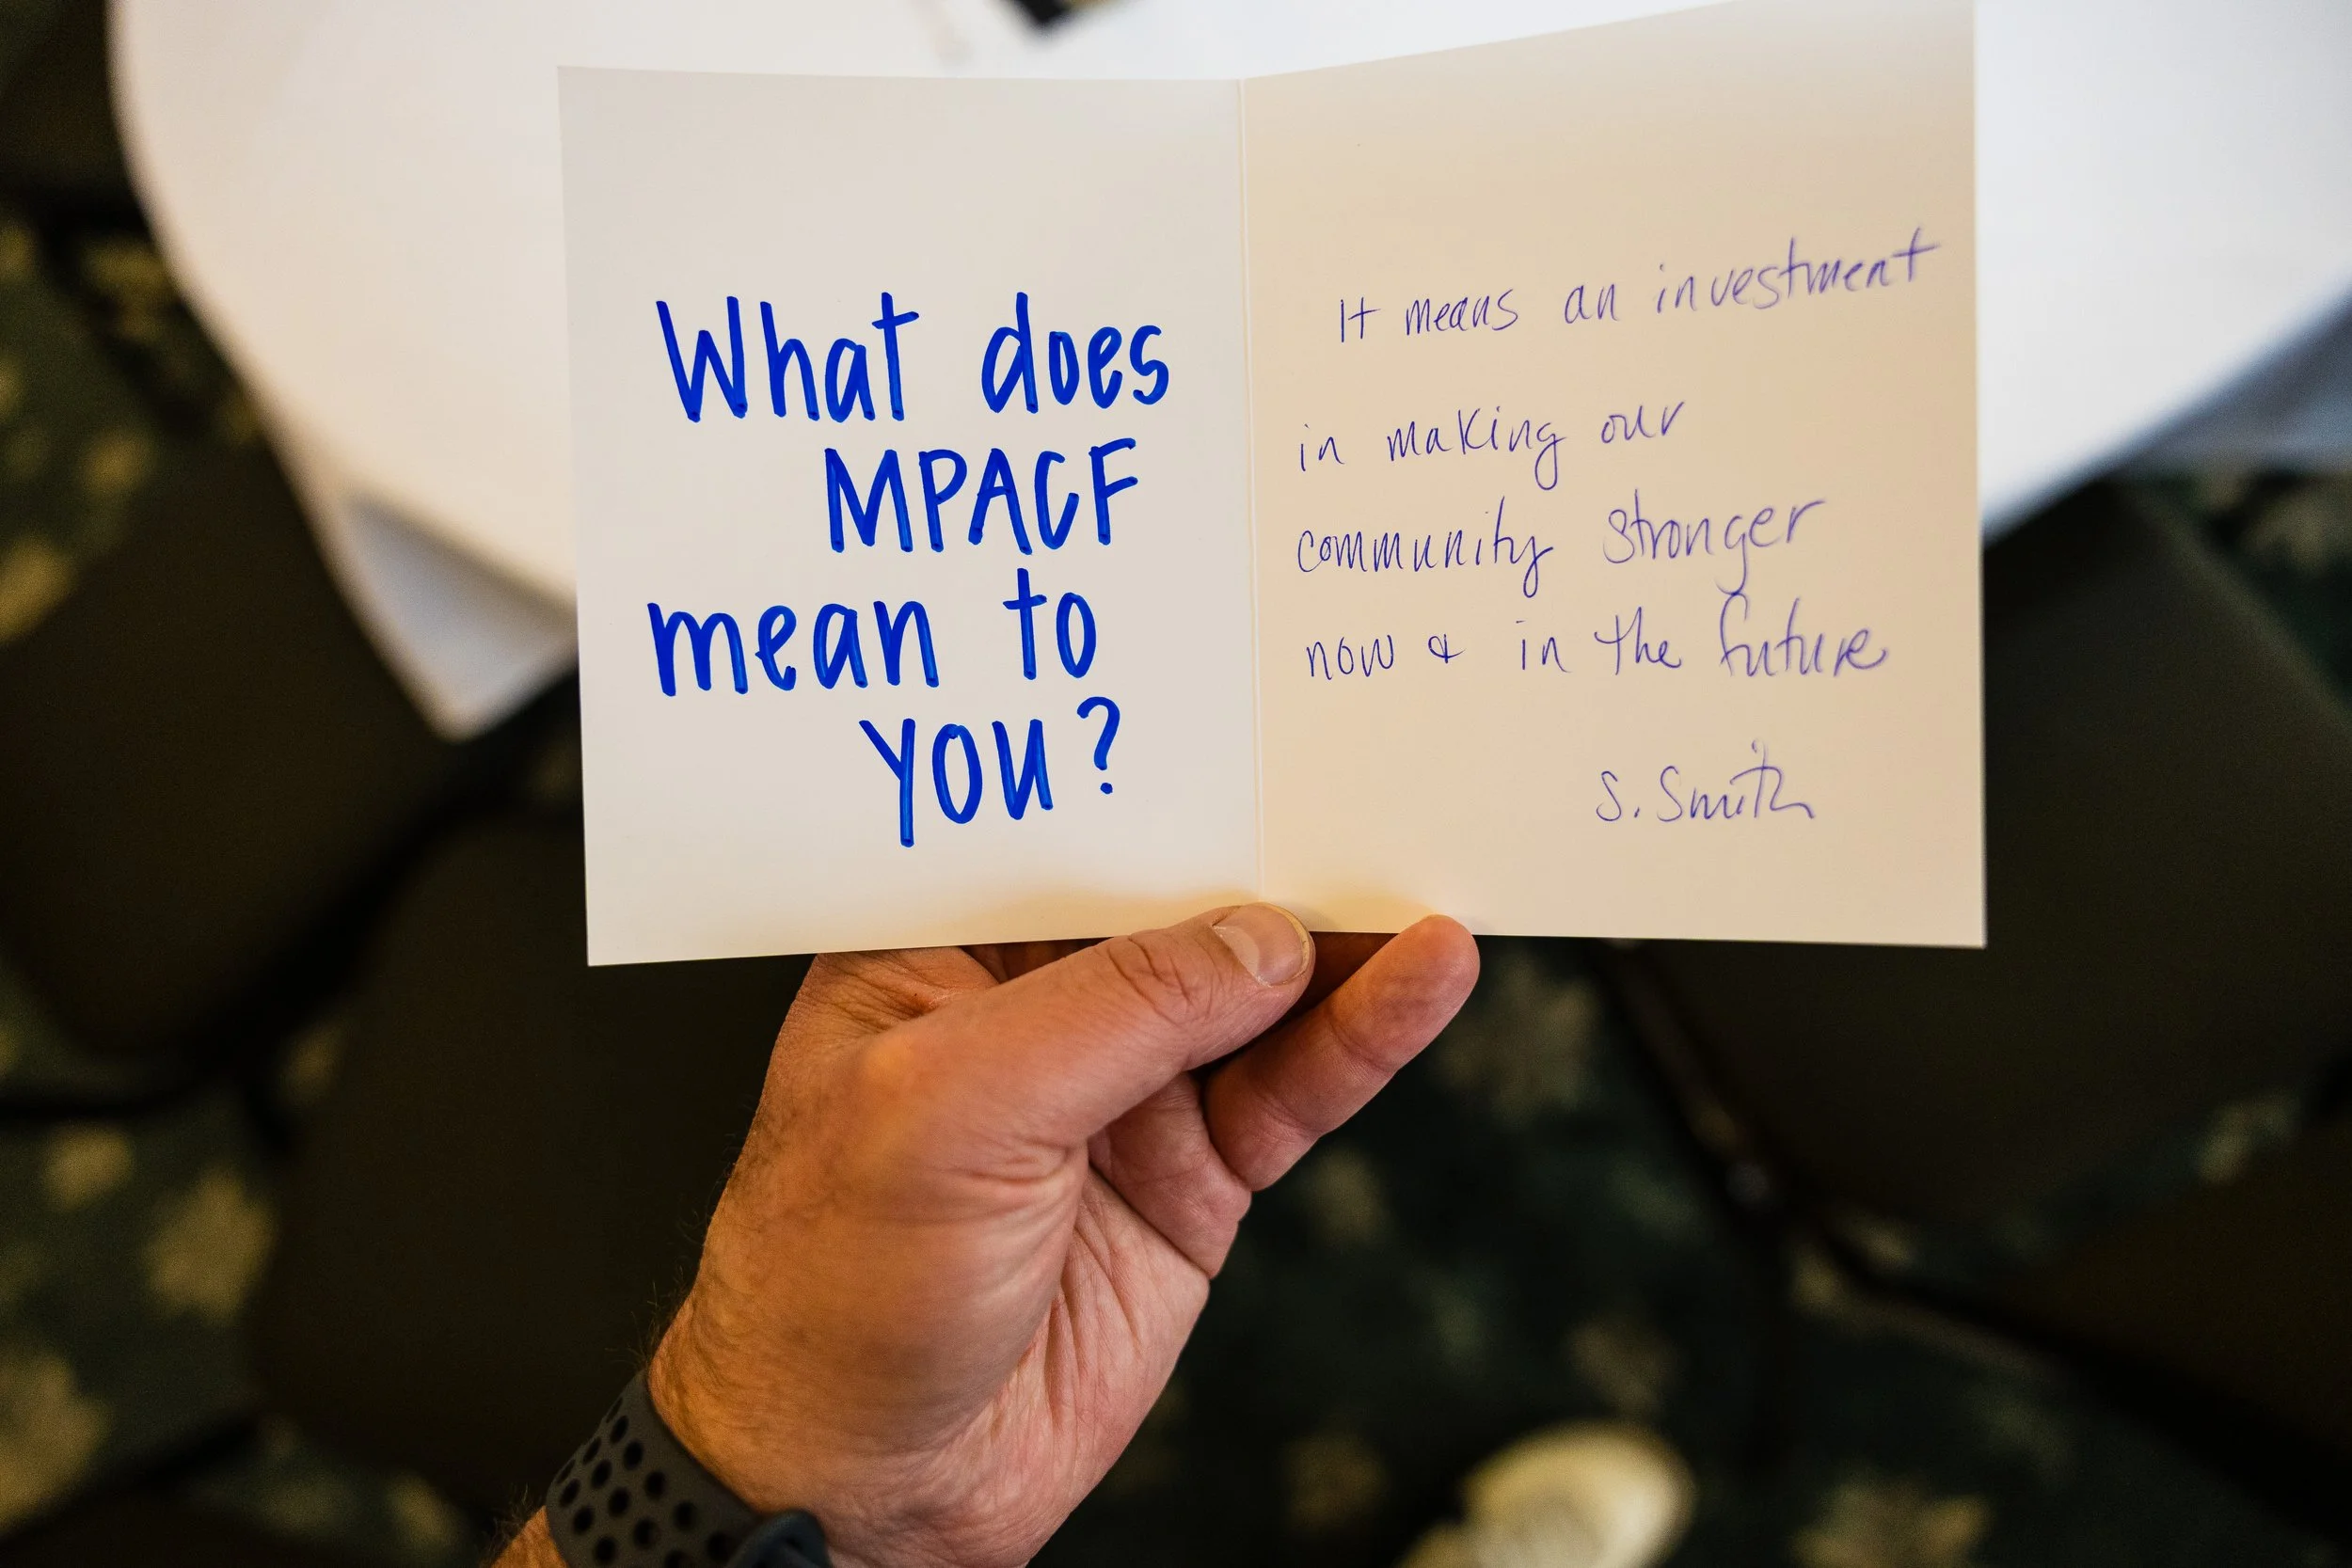 What does
MPACF
mean to
you?
It means an investment
in making our
community stronger
now & in the future
S. Smith